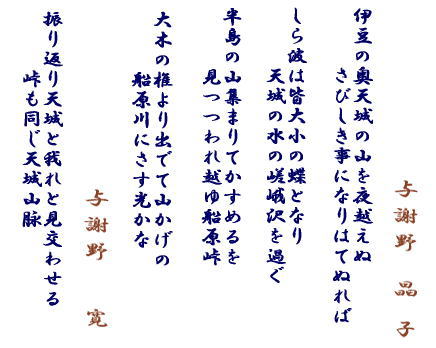 与謝野 晶子
伊豆の奥天城の山を夜越えぬ
さびしき事になりはてぬれば
しら波は皆大小の蝶となり
天城の水の嵯峨沢を過ぐ
半島の山集まりてかすめるを
見つつわれ越ゆ船原峠
大木の椎より出でて山かげの
船原川にさす光かな
与謝野 寛
振り返り天城と我れと見交わせる
峠も同じ天城山脈